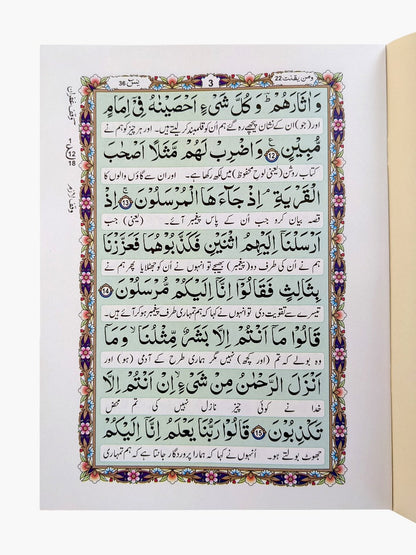 ومن یقنت 22
3
یٰسٓ 36
وَاٰثَارَهُمْ ؕ وَكُلَّ شَیْءٍ اَحْصَیْنٰهُ فِیْۤ اِمَامٍ
اور (جو) ان کے نشان پیچھے رہ گئے ہم ان کو قلمبند کر لیتے ہیں۔ اور ہر چیز کو ہم نے
مُّبِیْنٍ ۝۱۲ وَاضْرِبْ لَهُمْ مَّثَلًا اَصْحٰبَ
کتاب روشن (یعنی لوح محفوظ) میں لکھ رکھا ہے۔ اور ان سے گاؤں والوں کا
الْقَرْیَةِ ۘ اِذْ جَآءَهَا الْمُرْسَلُوْنَ ۝۱۳ اِذْ
قصہ بیان کرو جب اُن کے پاس پیغمبر آئے۔ (یعنی) جب
اَرْسَلْنَاۤ اِلَیْهِمُ اثْنَیْنِ فَكَذَّبُوْهُمَا فَعَزَّزْنَا
ہم نے اُن کی طرف دو (پیغمبر) بھیجے تو انہوں نے اُن کو جھٹلایا پھر ہم نے
بِثَالِثٍ فَقَالُوْۤا اِنَّاۤ اِلَیْكُمْ مُّرْسَلُوْنَ ۝۱۴
تیسرے سے تقویت دی تو انہوں نے کہا کہ ہم تمہاری طرف پیغمبر ہو کر آئے ہیں۔
قَالُوْا مَاۤ اَنْتُمْ اِلَّا بَشَرٌ مِّثْلُنَا ۙ وَمَاۤ
وہ بولے کہ تم (اور کچھ) نہیں مگر ہماری طرح کے آدمی (ہو) اور
اَنْزَلَ الرَّحْمٰنُ مِنْ شَیْءٍ ۙ اِنْ اَنْتُمْ اِلَّا
خدا نے کوئی چیز نازل نہیں کی تم محض
تَكْذِبُوْنَ ۝۱۵ قَالُوْا رَبُّنَا یَعْلَمُ اِنَّاۤ اِلَیْكُمْ
جھوٹ بولتے ہو۔ اُنہوں نے کہا کہ ہمارا پروردگار جانتا ہے کہ ہم تمہاری
1
12
18